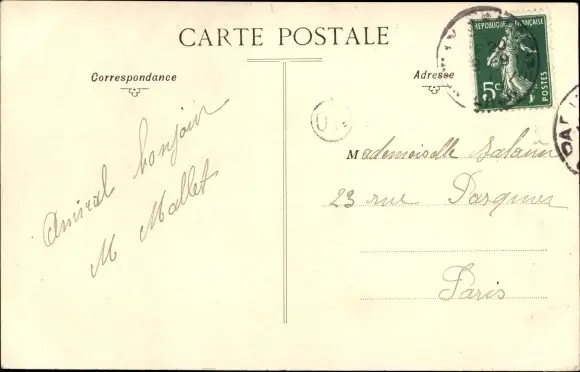 CARTE POSTALE
Correspondance
Adresse
REPUBLIQUE FRANÇAISE
5c
POSTES
Amical bonjour
M Mallet
Mademoiselle Salaün
23 rue
Paris